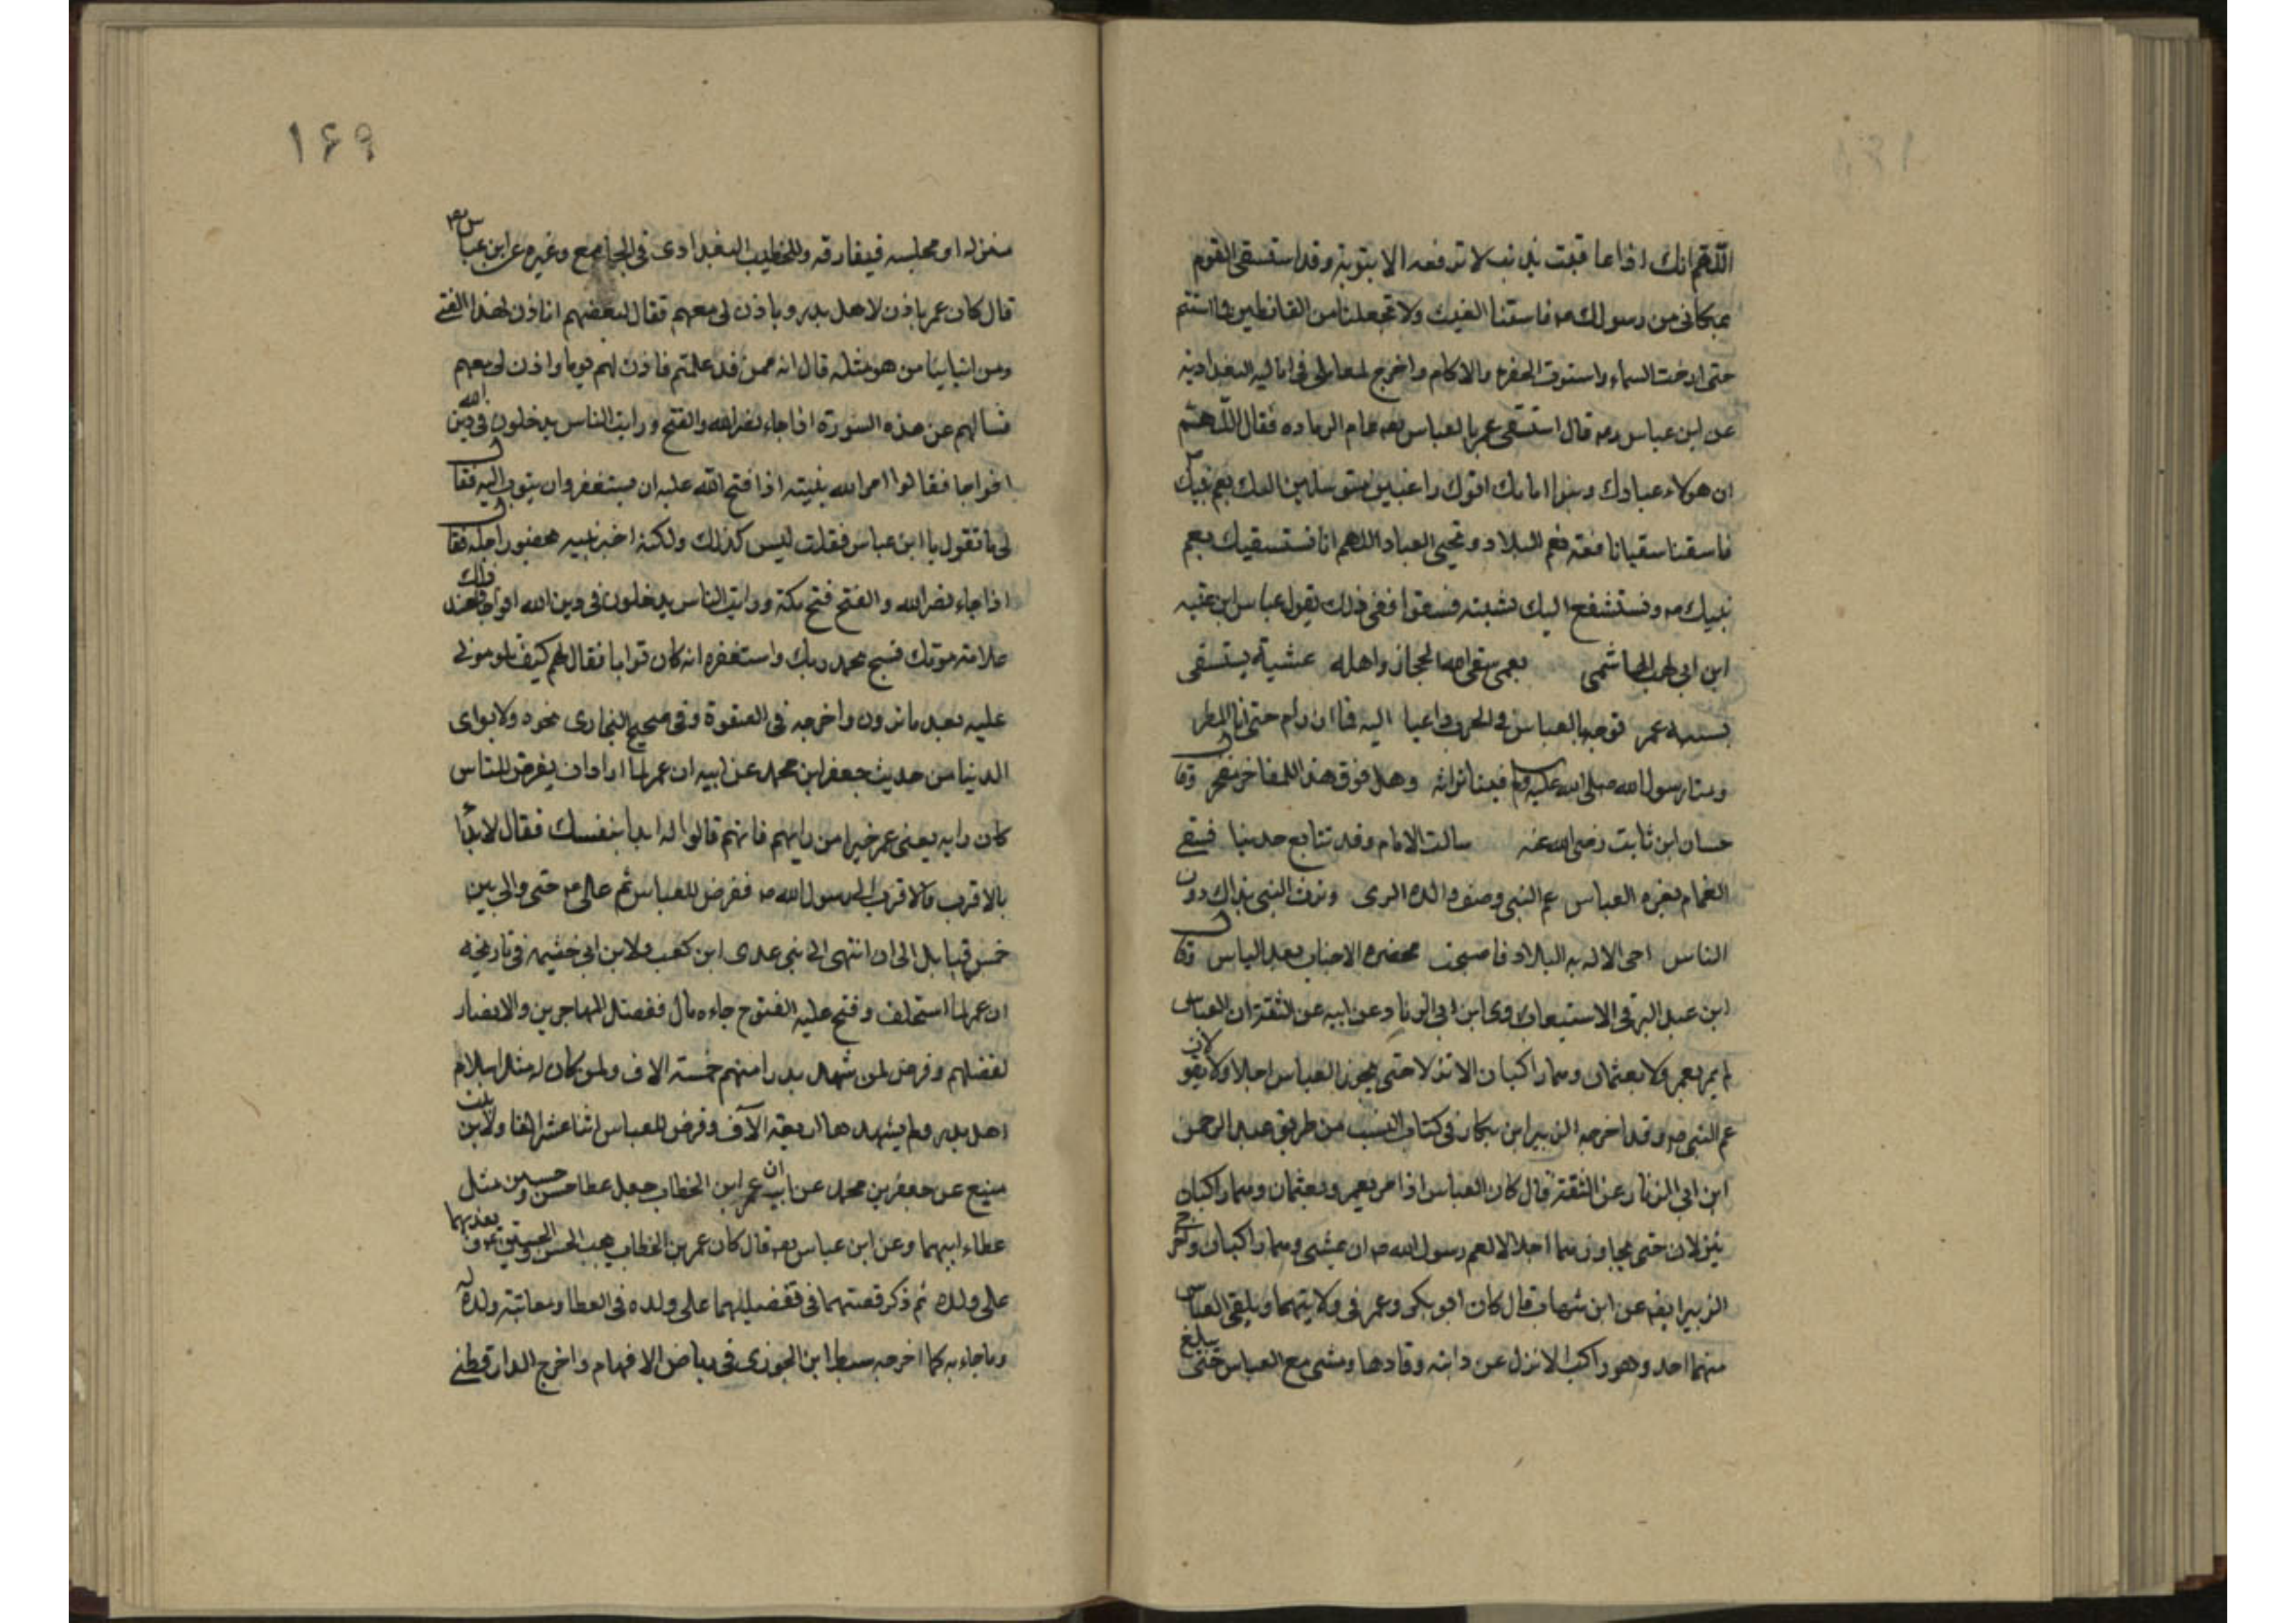 اللهم انك اذا عاقبت بذنب لا ترفعه الا بتوبة وقد استسقى القوم
بمكاني من رسولك صم فاسقنا الغيث ولا تجعلنا من القانطين فما استتم
حتى ارخت السماء واستوت الحفرة والاكام واخرج المحاملي في اماليه البغدادية
عن ابن عباس رعه قال استسقى عمر بالعباس رعه عام الرمادة فقال اللهم
ان هولاء عبادك وبنوا امائك اتوك راغبين متوسلين اليك بعم نبيك
فاسقنا سقيا نافعة تعم البلاد وتحيي العباد اللهم انا نستسقيك بعم
نبيك صم ونستشفع اليك بشيبته فسقوا ففي ذلك يقول عباس ابن عتبه
ابن ابي لهب الهاشمي بعمي سقى الله الحجاز واهله عشية يستسقي
بشيبه عمر توجه بالعباس في الجدب راغبا اليه فما ان رام حتى اتا المطر
ومنا رسول الله صلى الله عليه وسلم فينا تراثه وهل فوق هذا للمفاخر مفخر وقال
حسان ابن ثابت رضي الله عنه سالت الامام وقد تتابع جدبنا فسقي
الغمام بغرة العباس عم النبي وصنو والده الذي ورث النبي بذاك دون
الناس احى الاله به البلاد فاصبحت مخضرة الاجناب بعد الياس وقال
ابن عبد البر في الاستيعاب روى ابن ابي الزناد عن ابيه عن الثقة ان العباس
لم يمر بعمر ولا بعثمان وهما راكبان الا نزلا حتى يجوز العباس اجلالا ويقولان
عم النبي صم وقد اخرجه الزبير ابن بكار في كتاب النسب من طريق عبد الرحمن
ابن ابي الزناد عن الثقة قال كان العباس اذا مر بعمر وبعثمان وهما راكبان
ينزلان حتى يجاوزهما اجلالا لعم رسول الله صم ان يمشي وهما راكبان واخرج
الزبير ايضه عن ابن شهاب قال كان ابو بكر وعمر في ولايتهما لا يلقى العباس
منهما احد وهو راكب الا نزل عن دابته وقادها ومشى مع العباس حتى يبلغ
١٦٩
منزله او مجلسه فيفارقه وللخطيب البغدادي في الجامع وغيره عن ابن عباس رعه
قال كان عمر ياذن لاهل بدر وياذن لي معهم فقال بعضهم اتاذن لهذا الفتى
ومن ابنائنا من هو مثله قال انه ممن قد علمتم فاذن لهم يوما واذن لي معهم
فسالهم عن هذه السورة اذا جاء نصر الله والفتح ورايت الناس يدخلون في دين الله
افواجا فقالوا امر الله نبيه اذا فتح الله عليه ان يستغفر وان يتوب اليه فقال
لي ما تقول يا ابن عباس فقلت ليس كذلك ولكنه اخبر نبيه بحضور اجله فقال
اذا جاء نصر الله والفتح فتح مكة ورايت الناس يدخلون في دين الله افواجا فعند ذلك
علامة موتك فسبح بحمد ربك واستغفره انه كان توابا فقال لهم كيف تلوموني
عليه بعد ما ترون واخرجه في الصفوة وفي صحيح البخاري نحوه ولابن ابي
الدنيا من حديث جعفر ابن محمد عن ابيه ان عمر لما اراد ان يفرض للناس
كان رايه يعني عمر خيرا من رايهم فانهم قالوا له ابدا بنفسك فقال لا بدا
بالاقرب فالاقرب الى رسول الله صم ففرض للعباس ثم علي عم حتى والى بين
خمس قبايل الى ان انتهى الى بني عدي ابن كعب ولابن ابي خثيمه في تاريخه
ان عمر لما استخلف وفتح عليه الفتوح جاءه مال ففضل المهاجرين والانصار
لفضلهم وفرض لمن شهد بدرا منهم خمسة الاف ولمن كان له مثل اسلام
اهل بدر ولم يشهدها اربعة الآف وفرض للعباس اثنا عشر الفا ولابن بنت
منيع عن جعفر بن محمد عن ابيه ان عمر ابن الخطاب جعل عطا حسن وحسين مثل
عطاء ابيهما وعن ابن عباس رعه قال كان عمر بن الخطاب يحب الحسن والحسين ويقدمهما
على ولده ثم ذكر قصتهما في تفضيلهما على ولده في العطا ومعاتبة ولده له
وما جاءه به كما اخرجه سبط ابن الجوزي في رياض الافهام واخرج الدارقطني